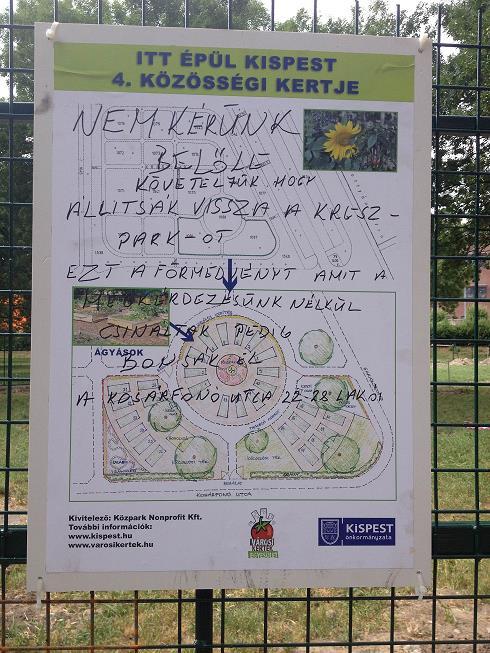 ITT ÉPÜL KISPEST
4. KÖZÖSSÉGI KERTJE
NEM KÉRÜNK
BELŐLE
KÖVETELJÜK HOGY
ÁLLITSÁK VISSZA A KRESZ-
PARK-OT
EZT A FÖRMEDVÉNYT AMIT A
MEGKÉRDEZÉSÜNK NÉLKÜL
CSINÁLTAK PEDIG
ÁGYÁSOK
BONTSÁK EL
A KOSÁRFONÓ UTCA 22-28 LAKÓI
KOSÁRFONÓ UTCA
Kivitelező: Közpark Nonprofit Kft.
További információk:
www.kispest.hu
www.varosikertek.hu
VÁROSI
KERTEK
EGYESÜLET
KISPEST
önkormányzata